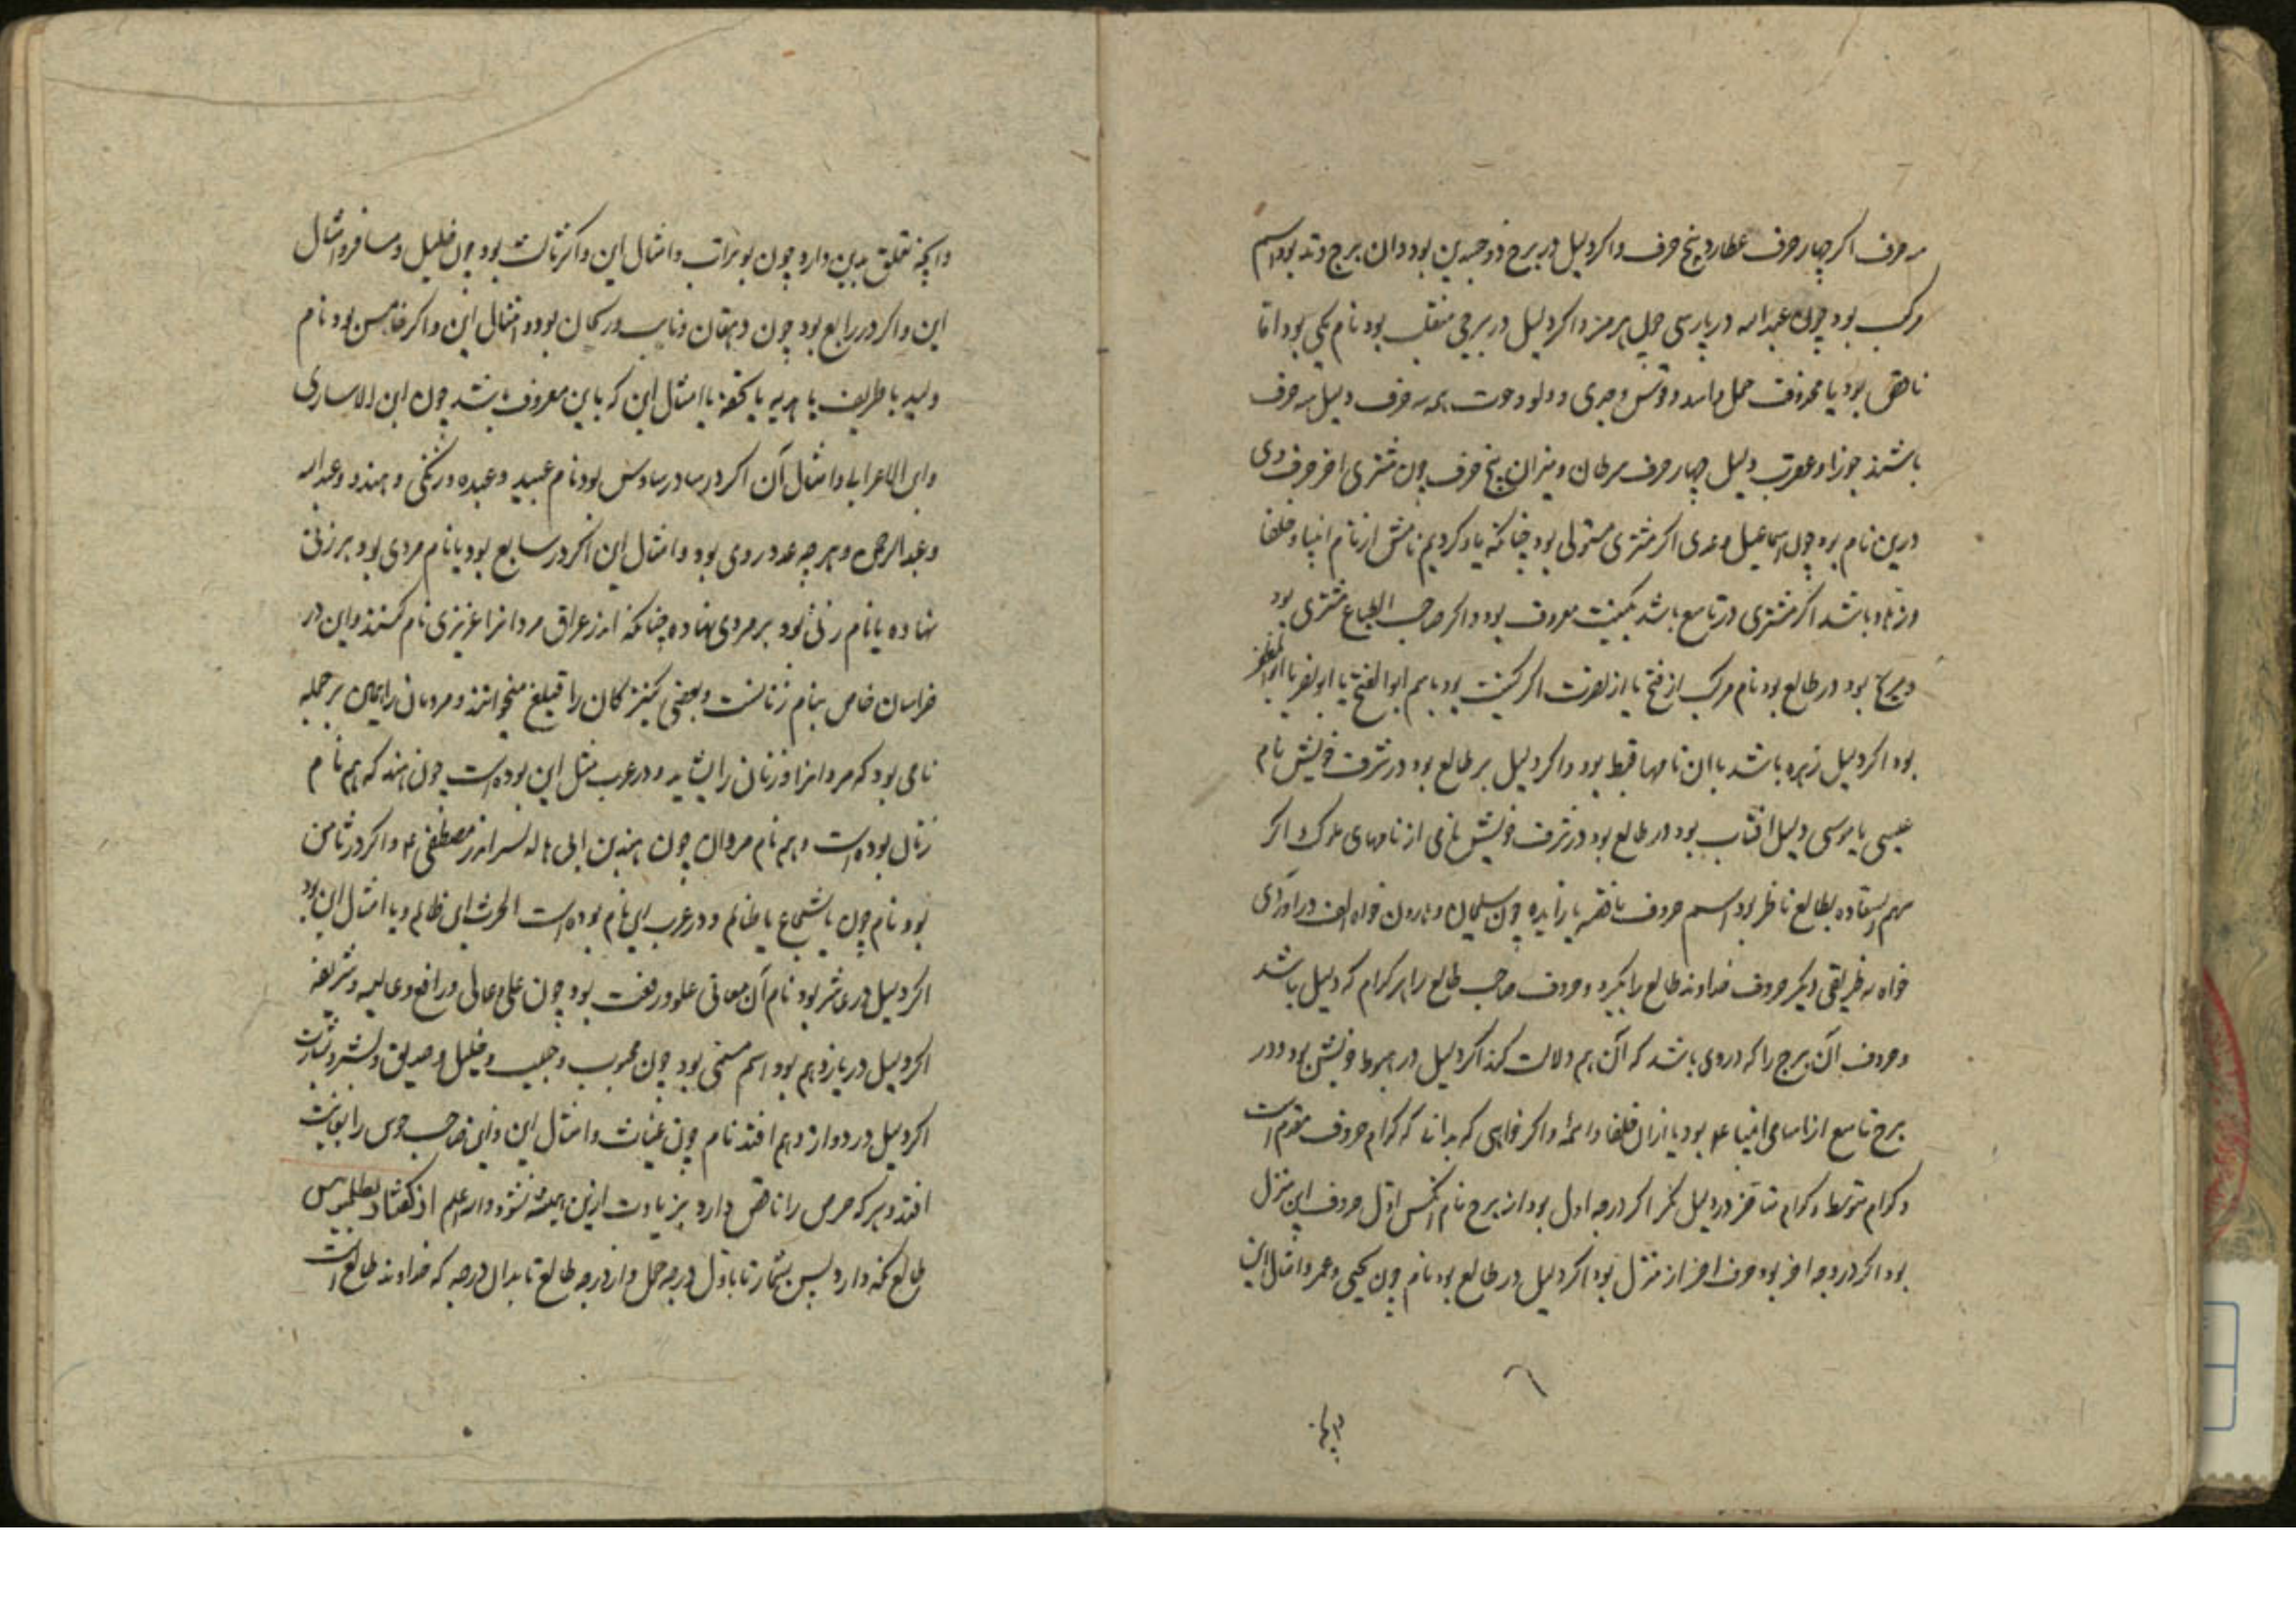 سه حرف اگر چهار حرف عطارد پنج حرف و اگر دلیل در برج ذو جسدین بود و ان برج وتد بود اسم
مرکب بود چون عبد الله و بپارسی چون هرمز و اگر دلیل در برجی منقلب بود نام یکی بود اما
ناقص بود یا محذوف حمل و اسد و قوس و جدی و دلو و حوت همه سه حرف دلیل سه حرف
باشند جوزا و عقرب دلیل چهار حرف سرطان و میزان پنج حرف چون مشتری اخر حرف وی
درین نام بود چون اسماعیل و عدی اگر مشتری مستولی بود چنانکه یاد کردیم نامش از نام انبیا و خلفا
و زهاد باشد اگر مشتری در تاسع باشد بکنیت معروف بود و اگر صاحب الطباع مشتری بود
و مریخ بود در طالع بود نام مرکب از فتح یا از نصرت اگر کنیت بود باسم ابو الفتح یا ابو نصر یا ابو المظفر
بود اگر دلیل زهره باشد با ان نامها قبط بود و اگر دلیل بر طالع بود در شرف خویش نام
عیسی یا موسی دلیل افتاب بود در طالع بود در شرف خویش نامی از نامهای ملوک و اگر
سهم السعاده بطالع ناظر بود اسم حروف ناقصه یا زایده چون سلیمان و هارون خواه الف در آوردی
خواه نه طریقی دیگر حروف خداوند طالع را بگیرد و حروف صاحب طالع را هر کدام که دلیل باشد
و حروف آن برج را که در وی باشد که آن هم دلالت کند اگر دلیل در هبوط خویش بود و در
برج تاسع از نامهای انبیا ع بود یا از ان خلفا و ائمه و اگر خواهی که بدانی که کدام حروف مقدم است
و کدام متوسط و کدام متاخر در دلیل نگر اگر در درجه اول بود از برج نام انکس اول حروف این منزل
بود اگر در درجه اخر بود حرف اخر از منزل بود اگر دلیل در طالع بود نام چون یحیی و عمر و امثال این
و انچه تعلق بدین دارد چون بو تراب و امثال این و اگر ثالث بود چون خلیل و مسافر و امثال
این و اگر در رابع بود چون دهقان و نایب و ریحان بود و امثال این و اگر خامس بود نام
ولید یا ظریف یا هدیه یا تحفه یا امثال این که باین معروف باشد چون ابن الاساری
و ابن الاعرابی و امثال آن اگر در سادس بود نام عبید و عبده و زنگی و هندو و عبد الله
و عبد الرحمن و هر چه عبد در وی بود و امثال این اگر در سابع بود یا نام مردی بود بر زنی
نهاده یا نام زنی بود بر مردی نهاده چنانکه اندر عراق مردانرا عزیزی نام کنند و این در
خراسان خاص بنام زنانست و بعضی کنیزکان را قتلغ میخوانند و مردمان را همین بر جمله
نامی بود که مردانرا و زنان را شاید و در عرب مثل این بوده است چون هند که هم نام
زنان بوده است و هم نام مردان چون هند بن ابی هاله پسر اندر مصطفی ع و اگر در ثامن
بود نام چون یا شجاع یا ظالم و در عرب این نام بوده است الحرث ابن ظالم و یا امثال این بود
اگر دلیل در عاشر بود نام آن معانی علو و رفعت بود چون علی و عالی و رافع و عالیه و شریفه
اگر دلیل در یازدهم بود اسم مسمی بود چون محبوب و حبیب و خلیل و صدیق و بشر و بشارت
اگر دلیل در دوازدهم افتد نام چون غیاث و امثال این و این صاحب جوی را بغایت
افتد و هر که حرص را ناقص دارد بزیادت ازین همیشه نشود و الله اعلم اندر گفتار بطلمیوس
طالع نگه دارد پس بشمار تا باول درجه حمل و از درجه طالع تا بدان درجه که خداوند طالع است